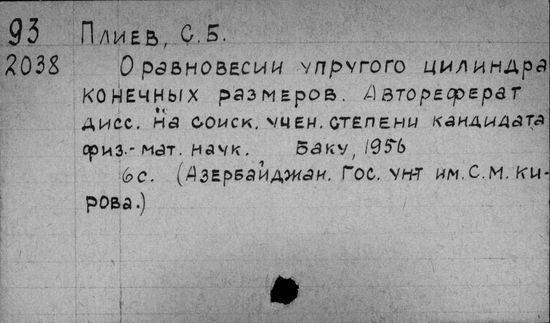 93 Плиев, С.Б.
2038 О равновесии упругого цилиндра
конечных размеров. Автореферат
дисс. на соиск. учен. степени кандидата
физ.-мат. наук. Баку, 1956
6с. (Азербайджан. Гос. ун-т им. С.М. Ки-
рова.)